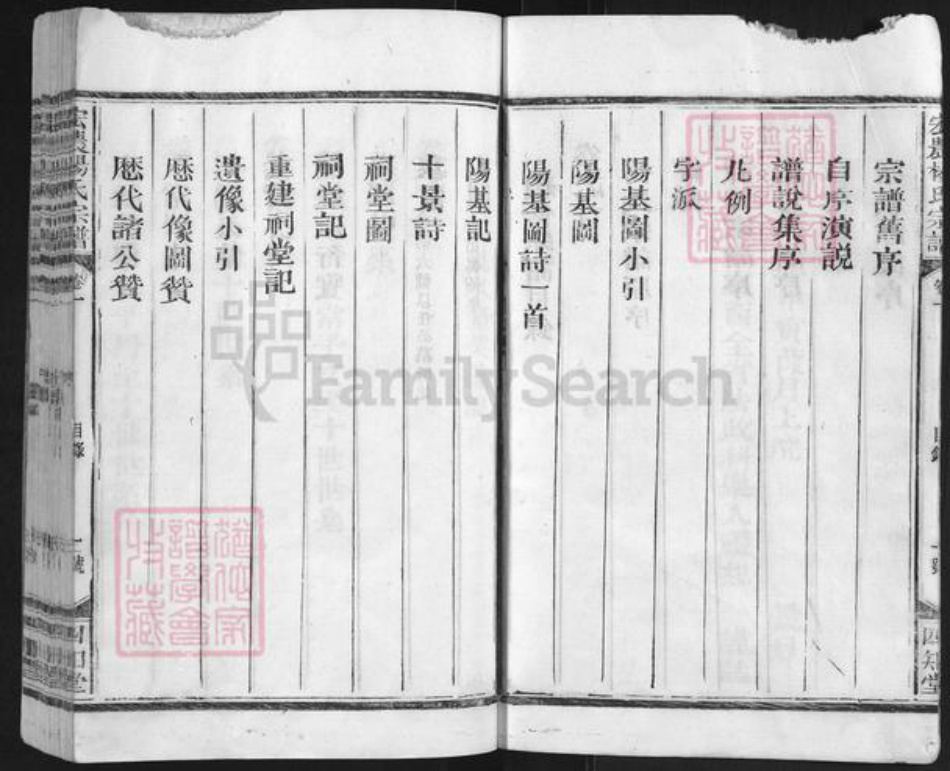 宗譜舊序
自序演説
譜說集序
凡例
字派
陽基圖小引
陽基圖
陽基圖詩一首
陽基記
十景詩
祠堂圖
祠堂記
重建祠堂記
遺像小引
歷代像圖贊
歷代諸公贊
宏農楊氏宗譜
卷一
目錄
一號
四知堂
FamilySearch